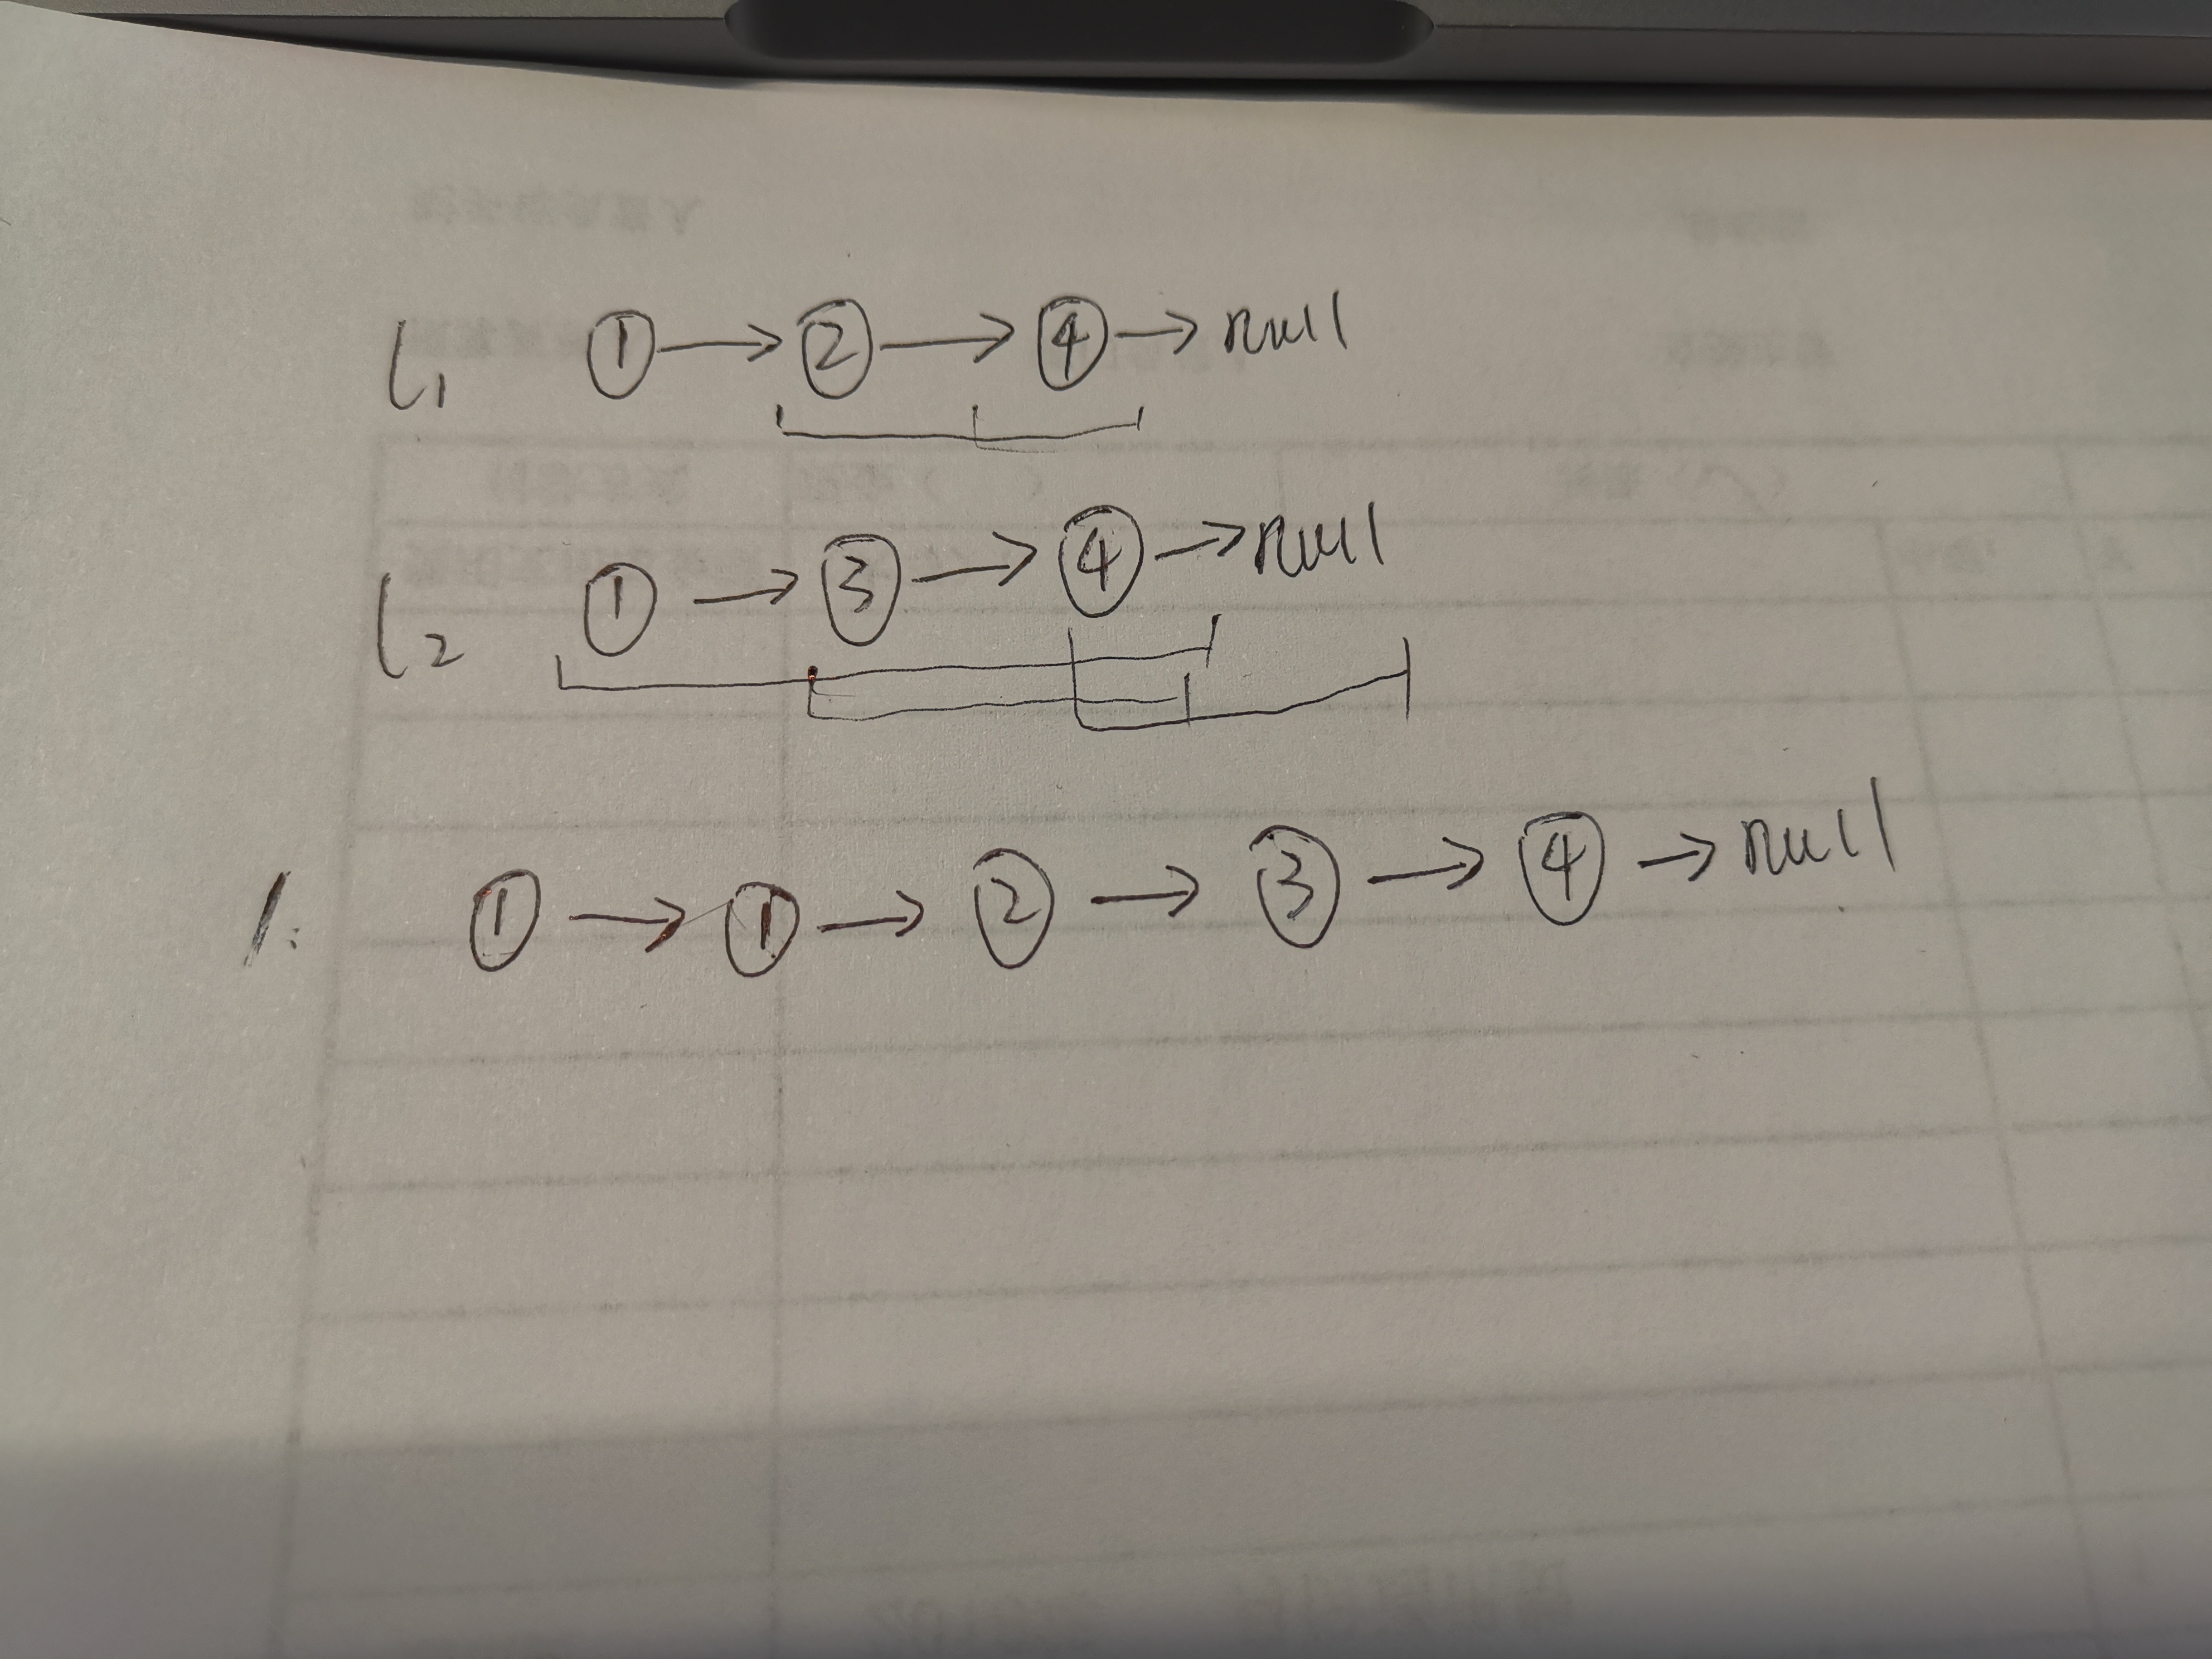 l1 ① → ② → ④ → null
l2 ① → ③ → ④ → null
l: ① → ① → ② → ③ → ④ → null